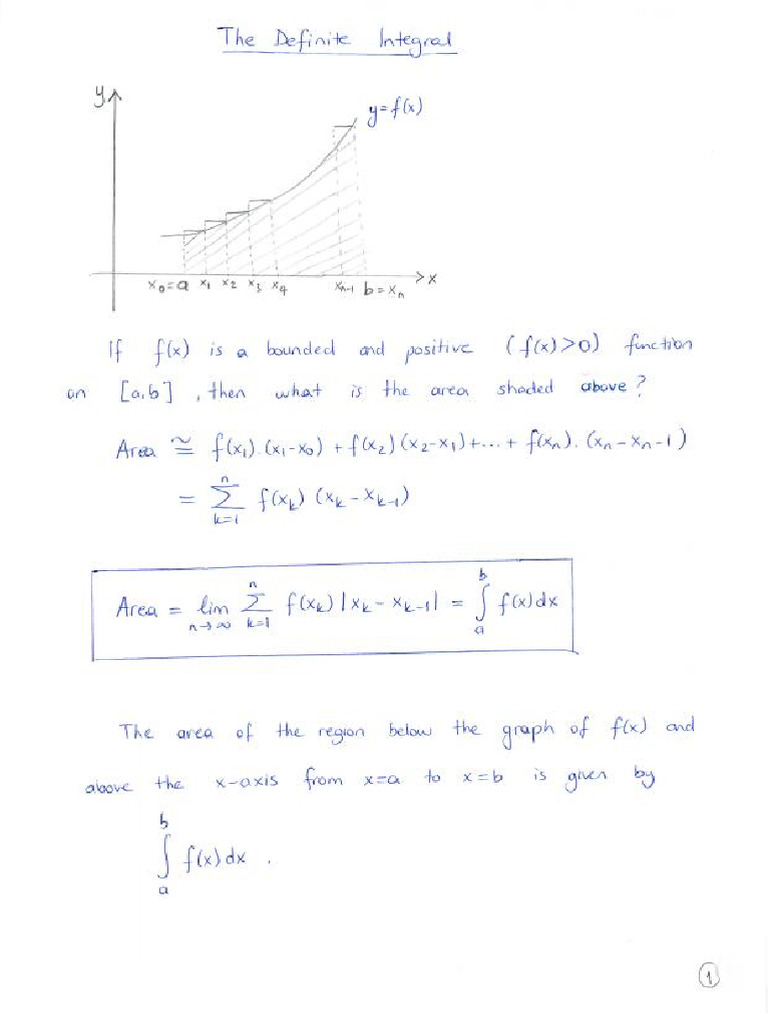 The Definite Integral
y
y=f(x)
x₀=a x₁ x₂ x₃ x₄ xₙ₋₁ b=xₙ x
If f(x) is a bounded and positive (f(x)>0) function
on [a,b], then what is the area shaded above?
Area ≅ f(x₁).(x₁-x₀)+f(x₂)(x₂-x₁)+...+f(xₙ).(xₙ-xₙ-1)
= ∑ₖ₌₁ⁿ f(xₖ) (xₖ-xₖ₋₁)
Area = lim n→∞ ∑ₖ₌₁ⁿ f(xₖ) |xₖ-xₖ₋₁| = ∫ₐᵇ f(x)dx
The area of the region below the graph of f(x) and
above the x-axis from x=a to x=b is given by
∫ₐᵇ f(x)dx.
1